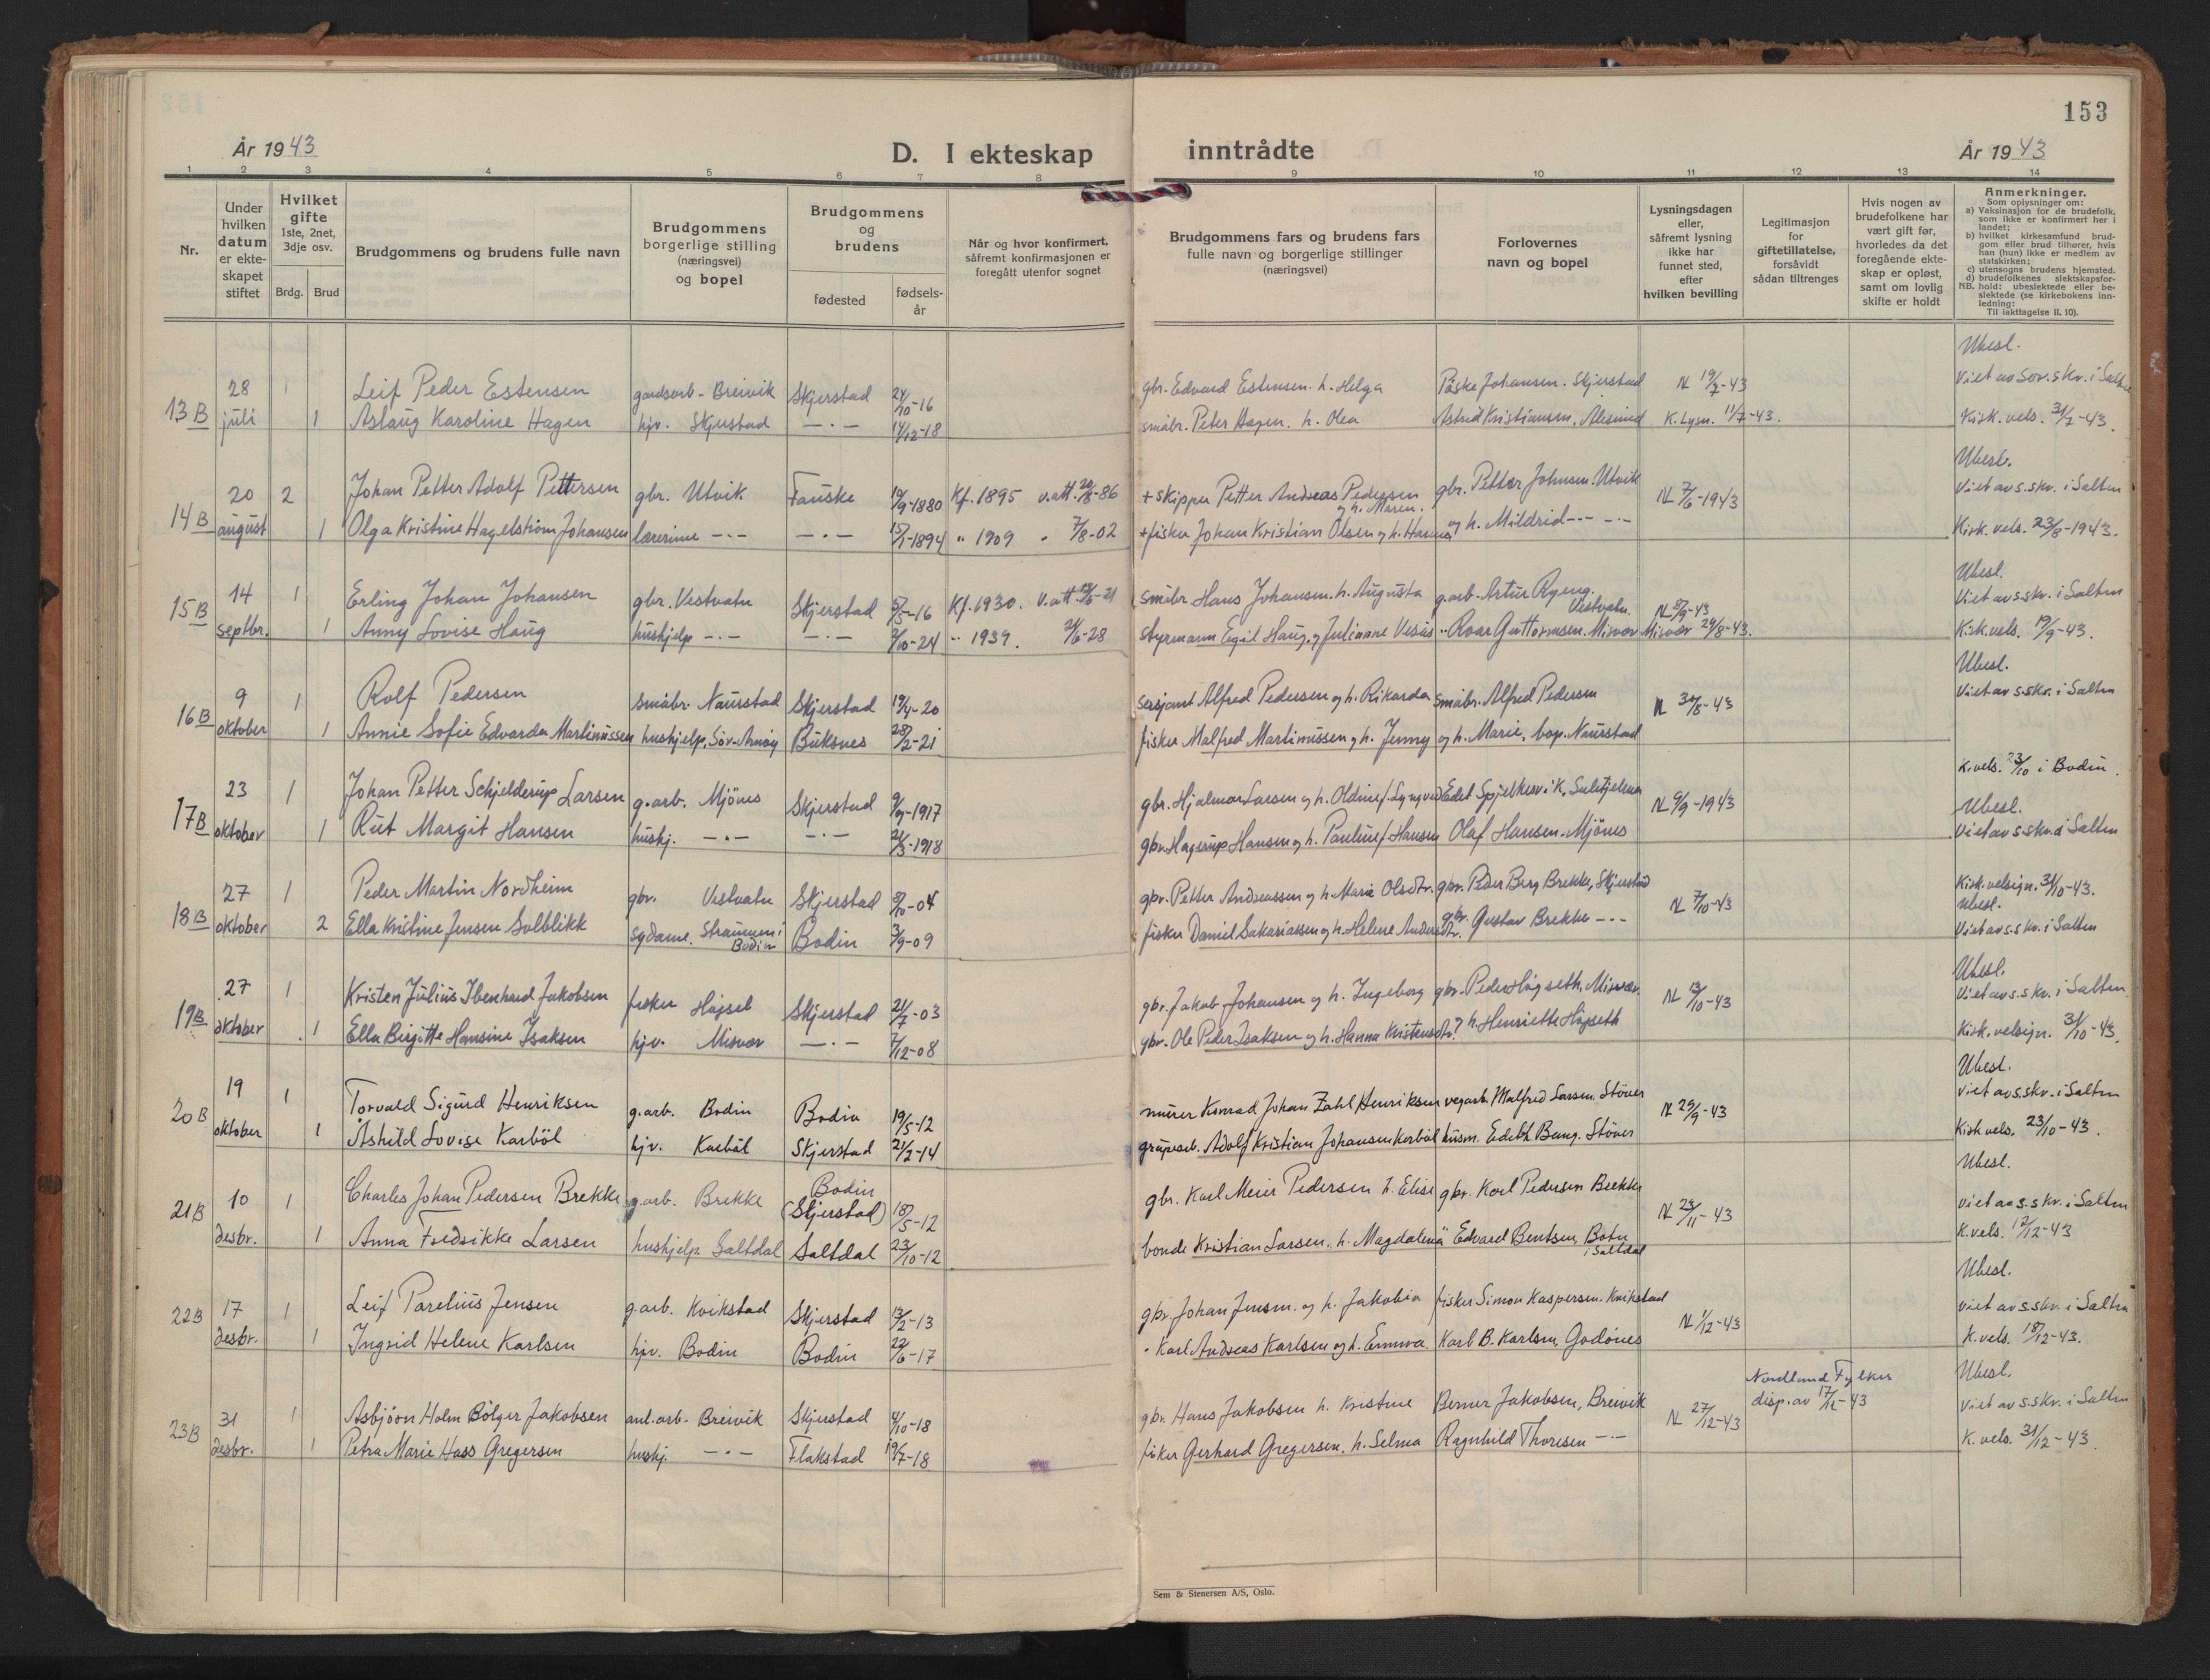 153
År 1943
D. I ekteskap inntrådte
År 1943
1 2 3 4 5 6 7 8 9 10 11 12 13 14
Nr.
Under hvilken datum er ekteskapet stiftet
Hvilket gifte 1ste, 2net, 3dje osv.
Brdg. Brud
Brudgommens og brudens fulle navn
Brudgommens borgerlige stilling (næringsvei) og bopel
Brudgommens og brudens
fødested
fødsels-år
Når og hvor konfirmert, såfremt konfirmasjonen er foregått utenfor sognet
Brudgommens fars og brudens fars fulle navn og borgerlige stillinger (næringsvei)
Forlovernes navn og bopel
Lysningsdagen eller, såfremt lysning ikke har funnet sted, efter hvilken bevilling
Legitimasjon for giftetillatelse, forsåvidt sådan tiltrenges
Hvis nogen av brudefolkene har vært gift før, hvorledes da det foregående ekteskap er opløst, samt om lovlig skifte er holdt
Anmerkninger.
Som oplysninger om:
a) Vaksinasjon for de brudefolk, som ikke er konfirmert her i landet;
b) hvilket kirkesamfund brudgom eller brud tilhører, hvis han (hun) ikke er medlem av statskirken;
c) utensogns brudens hjemsted.
d) brudefolkenes slektskapsforhold: ubeslektede eller beslektede (se kirkebokens innledning:
NB.
Til iakttagelse II. 10).
Ubesl.
13B 28 1 Leif Peder Estensen gardsarb. Breivik Skjerstad 24/10-16 gbr. Edvard Estensen. h. Helga Påske Johansen. Skjerstad N 19/7-43 Viet av Sor.skr. i Salten
juli 1 Aslaug Karoline Hagen hjv. Skjerstad —·— 14/12-18 småbr. Peter Hagen. h. Olea Astrid Kristiansen, Alesund K. Lysn. 11/7-43. Kirk. vels. 31/7-43.
Ubesl.
14B 20 2 Johan Petter Adolf Pettersen gbr. Utvik Fauske 19/9-1880 Kf. 1895 v.att. 20/8-86 + skipper Petter Andreas Pedersen og h. Maren. gbr. Petter Johnsen. Utvik N 7/6-1943 Viet av s.skr. i Salten
august 1 Olga Kristine Hagelstrøm Johansen lærerinne —·— —·— 15/1-1894 " 1909 " 7/8-02 + fisker Johan Kristian Olsen og h. Hanna og h. Mildrid —·— Kirk. vels. 23/8-1943.
Ubesl.
15B 14 1 Erling Johan Johansen gbr. Vestvatn Skjerstad 5/5-16 Kf. 1930. V.att. småbr Hans Johansen. h. Augusta g.arb. Artur Ryeng. Vestvatn. N 8/9-43 Viet av s.skr. i Salten
septbr. 1 Anny Lovise Haug hushjelp —·— —·— 2/10-24 " 1939. 24/6-28 styrmann Egil Haug, og Julianne Roar Guttormsen. Misvær Misvær 29/8-43. Kirk.vels. 19/9-43.
Ubesl.
16B 9 1 Rolf Pedersen småbr. Naurstad Skjerstad 19/4-20 sersjant Alfred Pedersen og h. Rikarda småbr. Alfred Pedersen N 30/8-43 Viet av s.skr. i Salten
oktober 1 Annie Sofie Edvarda Martinussen hushjelp, Sør-Arnøy Buksnes 28/2-21 fisker Malfred Martinussen og h. Jenny og h. Marie, bop. Naurstad
K.vels. 23/10 i Bodin.
17B 23 1 Johan Petter Schjelderup Larsen g.arb. Mjønes Skjerstad 9/9-1917 gbr. Hjalmar Larsen og h. Oldine f. Lyngved Edel Spjelkevik, Sulitjelma N 9/9-1943 Ubesl.
oktober 1 Rut Margit Hansen hushj. —·— —·— 24/3-1918 gbr. Hagerup Hansen og h. Pauline f. Hansen Olaf Hansen. Mjönes Viet av s.skr. i Salten
18B 27 1 Peder Martin Nordheim gbr. Vestvatn Skjerstad 8/10-04 gbr. Petter Andreassen og h. Marie Olsdtr. gbr. Peder Berg Brekke, Skjerstad N 7/10-43 Kirk.velsign. 31/10-43. Ubesl.
oktober 2 Ella Kristine Jensen Solblikk sydame. Straumen i Bodin Bodin 3/9-09 fisker Daniel Sakariassen og h. Helene Andersdtr. gbr. Gustav Brekke —·— Viet av s.skr. i Salten
Ubesl.
19B 27 1 Kristen Julius Ibenhard Jakobsen fisker Højset Skjerstad 21/7-03 gbr. Jakob Johansen og h. Ingeborg gbr. Peder Høgseth, Misvær. N 13/10-43 Viet av s.skr. i Salten.
oktober 1 Ella Birgitte Hansine Isaksen hjv. Misvær —·— 7/12-08 gbr. Ole Peder Isaksen og h. Hanna Kristensdtr. h. Henriette Högseth Kirk.velsign. 31/10-43.
Ubesl.
20B 19 1 Torvald Sigurd Henriksen g.arb. Bodin Bodin 19/5-12 murer Konrad Johan Zahl Henriksen vegarb. Malfred Larsen. Støver N 29/9-43 Viet av s.skr. i Salten
oktober 1 Åshild Lovise Karböl hjv. Karböl Skjerstad 21/2-14 grupearb. Adolf Kristian Johansen Karböl husm. Edith Bang. Støver Kirk vels. 23/10-43.
Ubesl.
21B 10 1 Charles Johan Pedersen Brekke g.arb. Brekke Bodin (Skjerstad) 18/5-12 gbr. Karl Meier Pedersen h. Elise gbr. Karl Pedersen Brekke N 23/11-43 Viet av s.skr. i Salten
desbr. 1 Anna Fredrikke Larsen hushjelp Saltdal Saltdal 23/10-12 bonde Kristian Larsen. h. Magdalena Edvard Bentsen, Botn i Saltdal K.vels. 12/12-43
Ubesl.
22B 17 1 Leif Parelius Jensen g.arb. Kvikstad Skjerstad 13/2-13 gbr. Johan Jensen. og h. Jakobia fisker Simon Kaspersen. Kvikstad N 1/12-43 Viet av s.skr. i Salten
desbr. 1 Ingrid Helene Karlsen hjv. Bodin Bodin 22/6-17 " Karl Andreas Karlsen og h. Emma. Karl B. Karlsen, Godönes K.vels. 18/12-43.
Nordland Fylkes Ubesl.
23B 31 1 Asbjörn Holm Bölger Jakobsen anl.arb. Breivik Skjerstad 4/10-18 gbr. Hans Jakobsen h. Kristine Berner Jakobsen, Breivik N 27/12-43 disp. av 17/12-43 Viet av s.skr. i Salten
desbr. 1 Petra Marie Hass Gregersen hushj. —·— Flakstad 19/7-18 fisker Gerhard Gregersen, h. Selma Ragnhild Thoresen —·— K.vels. 31/12-43.
Sem & Stenersen A/S, Oslo.